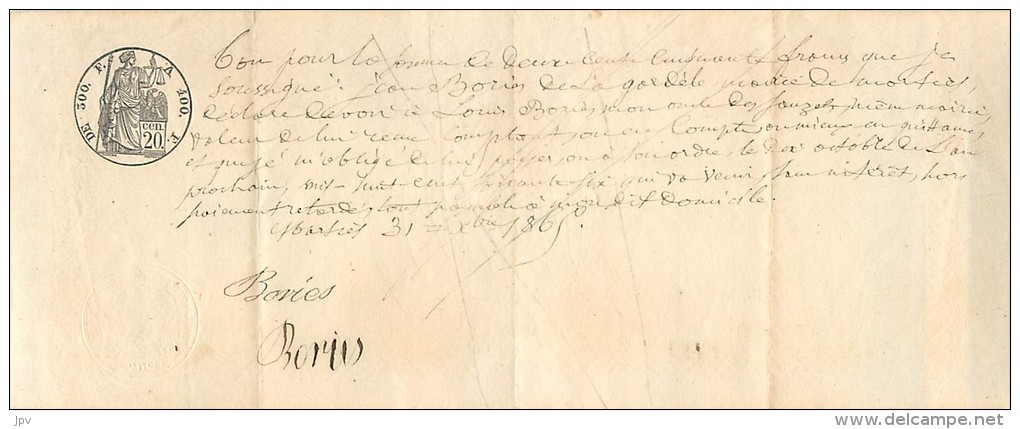 DE 300. F. A 400. F.
CEN. 20.
Bon pour la somme de deux cents cinquante francs que je
soussigné: Jean Bories de La gardèle mairie de mostiés,
déclare devoir à Louis Bories, mon oncle des Souzets, même mairie,
valeur de lui reçue comptant, son en compte, ou mieux en quittances
et que je m'oblige de lui payer, ou à son ordre, le dix octobre de l'an
prochain, mil-huit-cent soixante six qui va venir, sans intérêt, hors
paiement retardé, tout payable à mon dit domicile.
31 = Xbre 1865.
Bories
Bories
jpv
www.delcampe.net